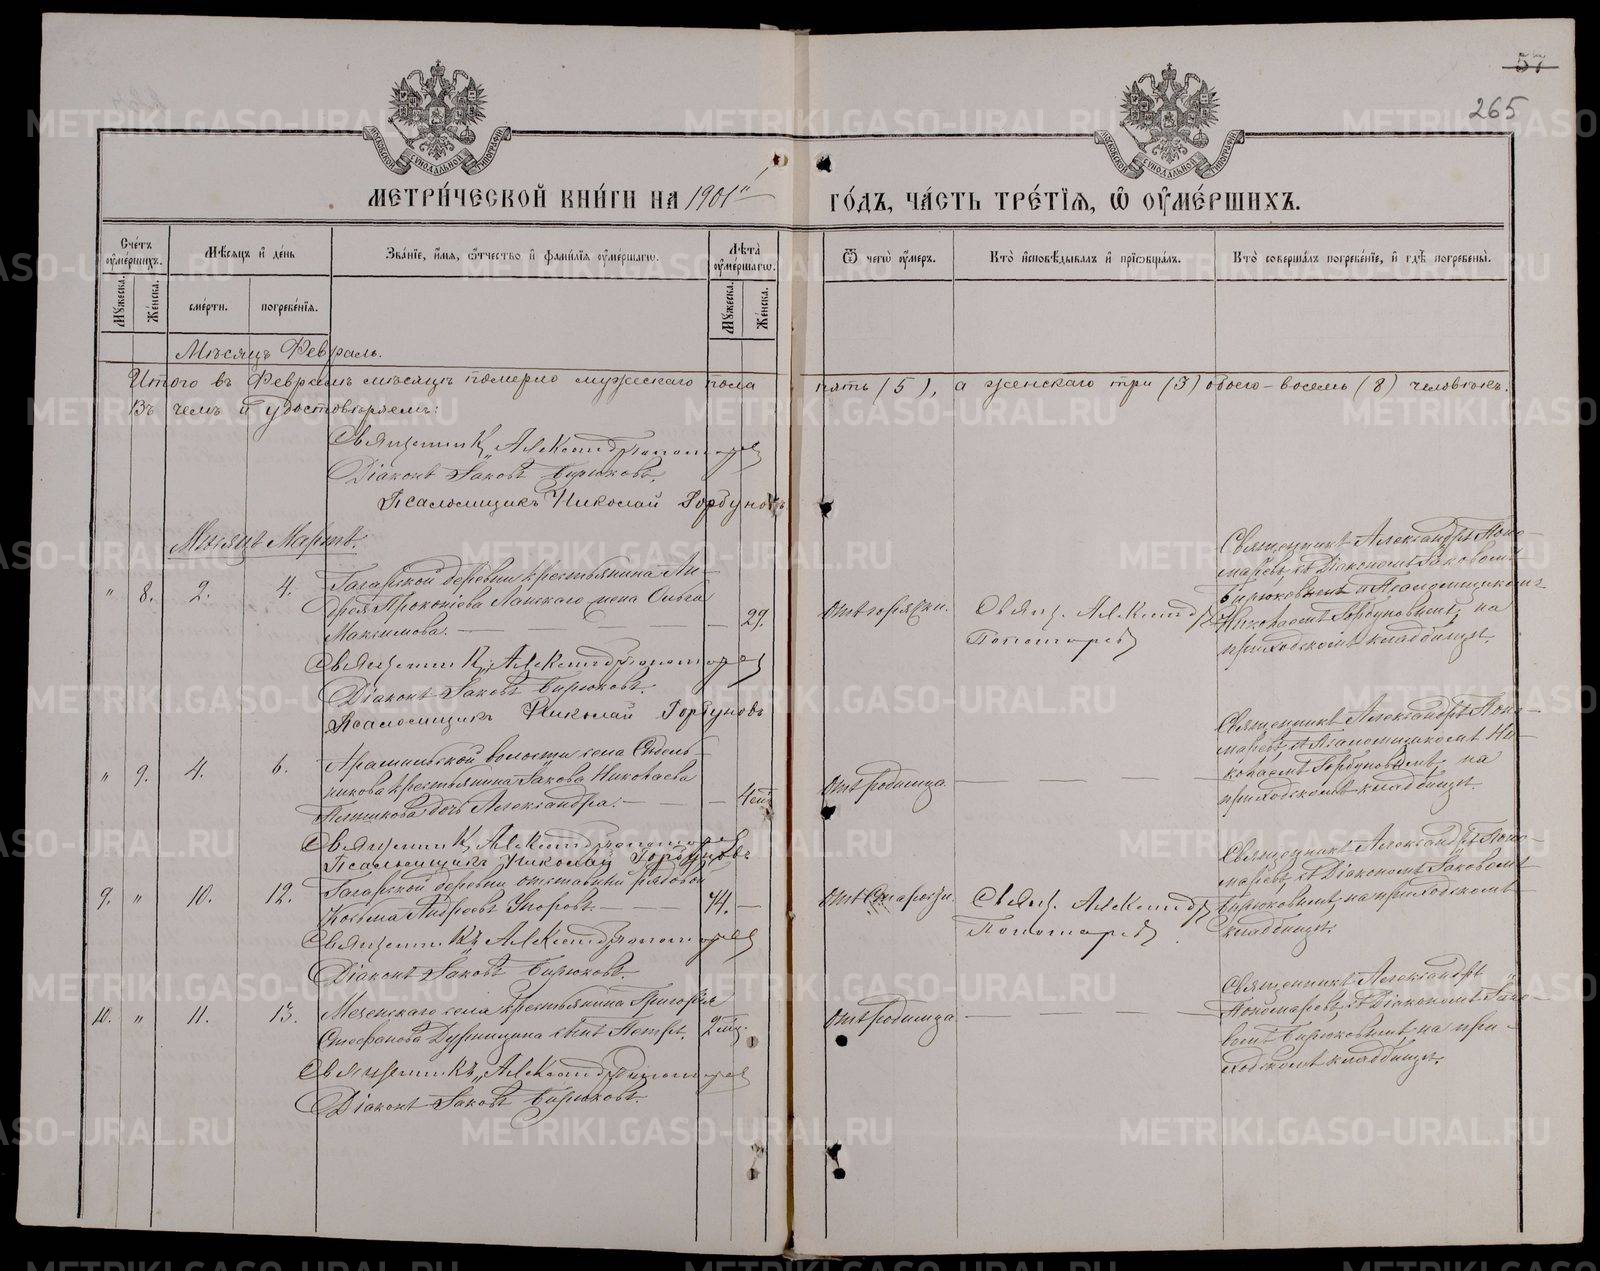 57
265
МОСКОВСКОЙ СѴНОДАЛЬНОЙ ТИПОГРАФІИ
МОСКОВСКОЙ СѴНОДАЛЬНОЙ ТИПОГРАФІИ
МЕТРИ́ЧЕСКОЙ КНИ́ГИ НА 1901й ГО́ДЪ, ЧА́СТЬ ТРЕ́ТІѦ, Ѡ ОУМЕ́РШИХЪ.
Сче́тъ оумершихъ.
Мѣ́сяцъ и де́нь
Зва́ніе, и́мя, ѻтчество и фами́лія оуме́ршагѡ.
Лѣта̀ оумершагѡ.
Ѿ чегѡ̀ оу́меръ.
Кто̀ и҆сповѣ́дывалъ и прїѡбща́лъ.
Кто̀ соверша́лъ погребе́ніе, и гдѣ̀ погребены̀.
Мужеска.
Женска.
сме́рти.
погребе́нія.
Мужеска.
Женска.
Мѣсяцъ Февраль.
Итого въ Февралѣ мѣсяцѣ померло мужескаго пола пять (5), а женскаго три (3) обоего - восемь (8) человѣкъ.
Въ чемъ и удостовѣряемъ:
Священникъ Александръ Пономаревъ
Діаконъ Іаковъ Бирюковъ.
Псаломщикъ Николай Горбуновъ
Мѣсяцъ Мартъ.
" 8. 2. 4. Гагарской деревни крестьянина Ан-
дрея Прокопіева Ланскаго жена Ольга
Максимова. 29.
Отъ горячки.
Свящ. Александръ
Пономаревъ
Священникъ Александръ Поно-
маревъ съ Діакономъ Іаковомъ
Бирюковымъ и Псаломщикомъ
Николаемъ Горбуновымъ, на
приходскомъ кладбищѣ.
Священникъ Александръ Пономаревъ
Діаконъ Іаковъ Бирюковъ.
Псаломщикъ Николай Горбуновъ
" 9. 4. 6. Арамильской волости села
крестьянина Іакова Николаева
дочь Александра.
Отъ родимца.
Священникъ Александръ Поно-
маревъ съ Псаломщикомъ Ни-
колаемъ Горбуновымъ, на
приходскомъ кладбищѣ.
Священникъ Александръ Пономаревъ
Псаломщикъ Николай Горбуновъ
9. " 10. 12. Гагарской деревни отставный рядовой
Косьма Андреевъ Упоровъ.
Отъ старости.
Свящ. Александръ
Пономаревъ
Священникъ Александръ Поно-
маревъ съ Діакономъ Іаковомъ
Бирюковымъ, на приходскомъ
кладбищѣ.
Священникъ Александръ Пономаревъ
Діаконъ Іаковъ Бирюковъ.
10. " 11. 13. Мезенскаго села крестьянина Григорія
Стефанова сынъ Петръ.
Отъ родимца.
Священникъ Александръ
Пономаревъ съ Діакономъ Іако-
вомъ Бирюковымъ, на при-
ходскомъ кладбищѣ.
Священникъ Александръ Пономаревъ
Діаконъ Іаковъ Бирюковъ.
METRIKI.GASO-URAL.RU